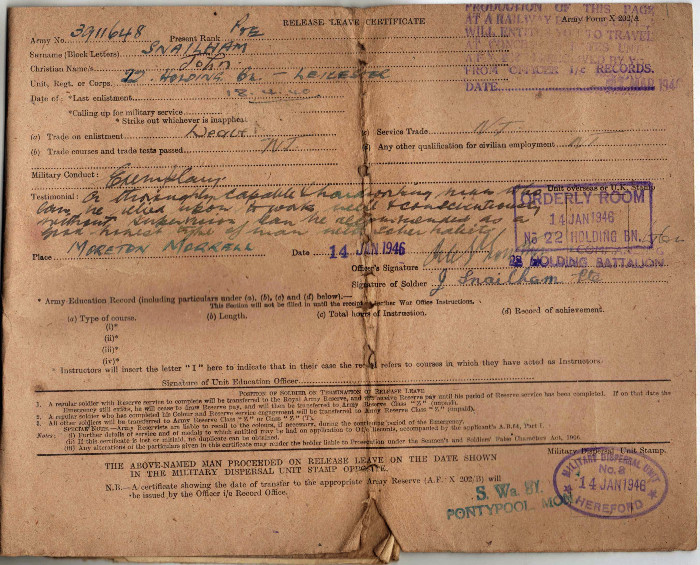 RELEASE LEAVE CERTIFICATE
Army Form X 202/A
PRODUCTION OF THIS PAGE
AT A RAILWAY
WILL ENTITLE TO TRAVEL
FROM OFFICER I/c RECORDS.
DATE
Army No. 3911648 Present Rank Pte
Surname (Block Letters) SNAILHAM
Christian Name/s John
Unit, Regt. or Corps. 22 HOLDING Bn. - LEICESTER
Date of: *Last enlistment 18.4.40
*Calling up for military service
* Strike out whichever is inapplicable.
(a) Trade on enlistment
(b) Trade courses and trade tests passed NIL
(c) Service Trade NIL
(d) Any other qualification for civilian employment NIL
Military Conduct: Exemplary
Unit overseas or U.K. Stamp
Testimonial: A thoroughly capable & hardworking man who
can be relied upon to work well & conscientiously
without supervision. Can be recommended as a
good honest type of man with sober habits
ORDERLY ROOM
14 JAN 1946
No 22 HOLDING BN.
22 HOLDING BATTALION
Place MORETON MORRELL Date 14 JAN 1946
Officer's Signature
Signature of Soldier J Snailham Pte
* Army Education Record (including particulars under (a), (b), (c) and (d) below).—
This Section will not be filled in until the receipt of further War Office Instructions.
(a) Type of course. (b) Length. (c) Total hours of Instruction. (d) Record of achievement.
(i)*
(ii)*
(iii)*
(iv)*
* Instructors will insert the letter "I" here to indicate that in their case the record refers to courses in which they have acted as Instructors.
Signature of Unit Education Officer
POSITION OF SOLDIER ON TERMINATION OF RELEASE LEAVE
1. A regular soldier with Reserve service to complete will be transferred to the Royal Army Reserve, and will receive Reserve pay until his period of Reserve service has been completed. If on that date the
Emergency still exists, he will cease to draw Reserve pay, and will then be transferred to Army Reserve Class "Z" (unpaid).
2. A regular soldier who has completed his Colour and Reserve service engagement will be transferred to Army Reserve Class "Z" (unpaid).
3. All other soldiers will be transferred to Army Reserve Class "Z" or Class "Z" (T).
Army Reservists are liable to recall to the colours, if necessary, during the continuance period of the Emergency.
Notes: (i) Further details of service and of medals to which entitled may be had on application to O i/c Records, accompanied by the applicant's A.B.64, Part I.
(ii) If this certificate is lost or mislaid, no duplicate can be obtained.
(iii) Any alterations of the particulars given in this certificate may render the holder liable to Prosecution under the Seamen's and Soldiers' False Characters Act, 1906.
THE ABOVE-NAMED MAN PROCEEDED ON RELEASE LEAVE ON THE DATE SHOWN
IN THE MILITARY DISPERSAL UNIT STAMP OPPOSITE.
N.B.—A certificate showing the date of transfer to the appropriate Army Reserve (A.F. X 202/B) will
be issued by the Officer i/c Record Office.
Military Dispersal Unit Stamp.
S. Wa. BY.
PONTYPOOL MON
MILITARY DISPERSAL UNIT
No. 8
14 JAN 1946
HEREFORD